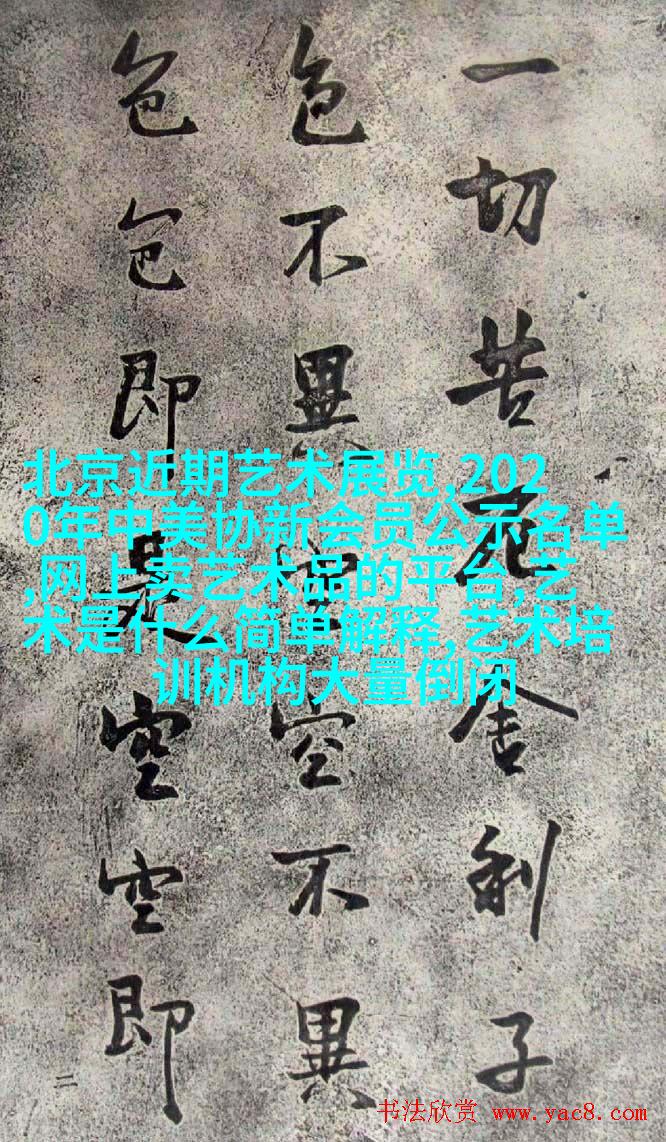 一切苦厄舍利子
色不異空空不異
色色即是空空即
二
北京近期艺术展览,202
0年中美协新会员公示名单
,网上卖艺术品的平台,艺
术是什么简单解释,艺术培
训机构大量倒闭
书法欣赏 www.yac8.com